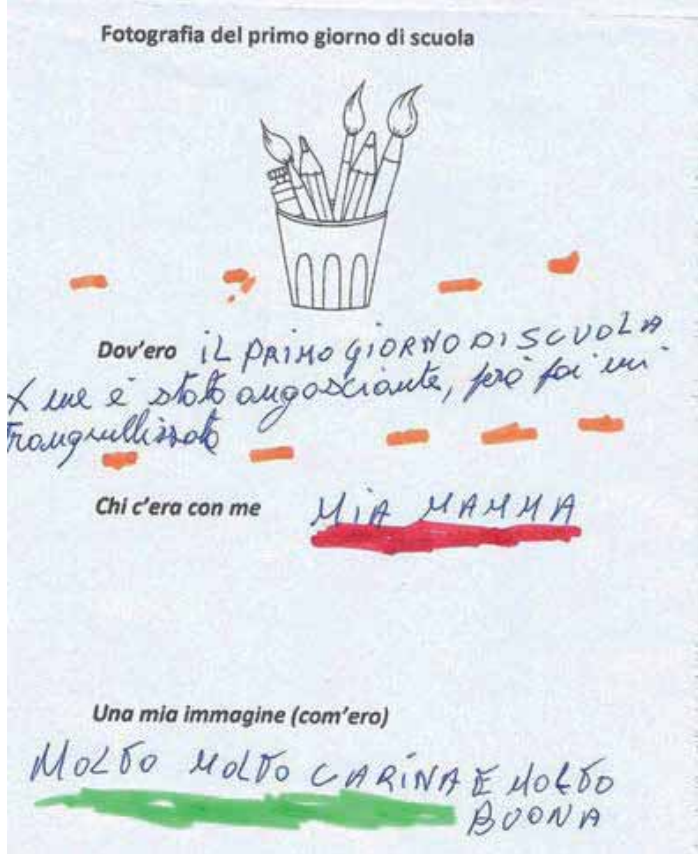 Fotografia del primo giorno di scuola
Dov'ero iL PRIMO GIORNO DI SCUOLA
X me è stato angosciante, però poi mi
Tranquillizzata
Chi c'era con me MiA MAMMA
Una mia immagine (com'ero)
MOLTO MOLTO CARINA E MOLTO
BUONA